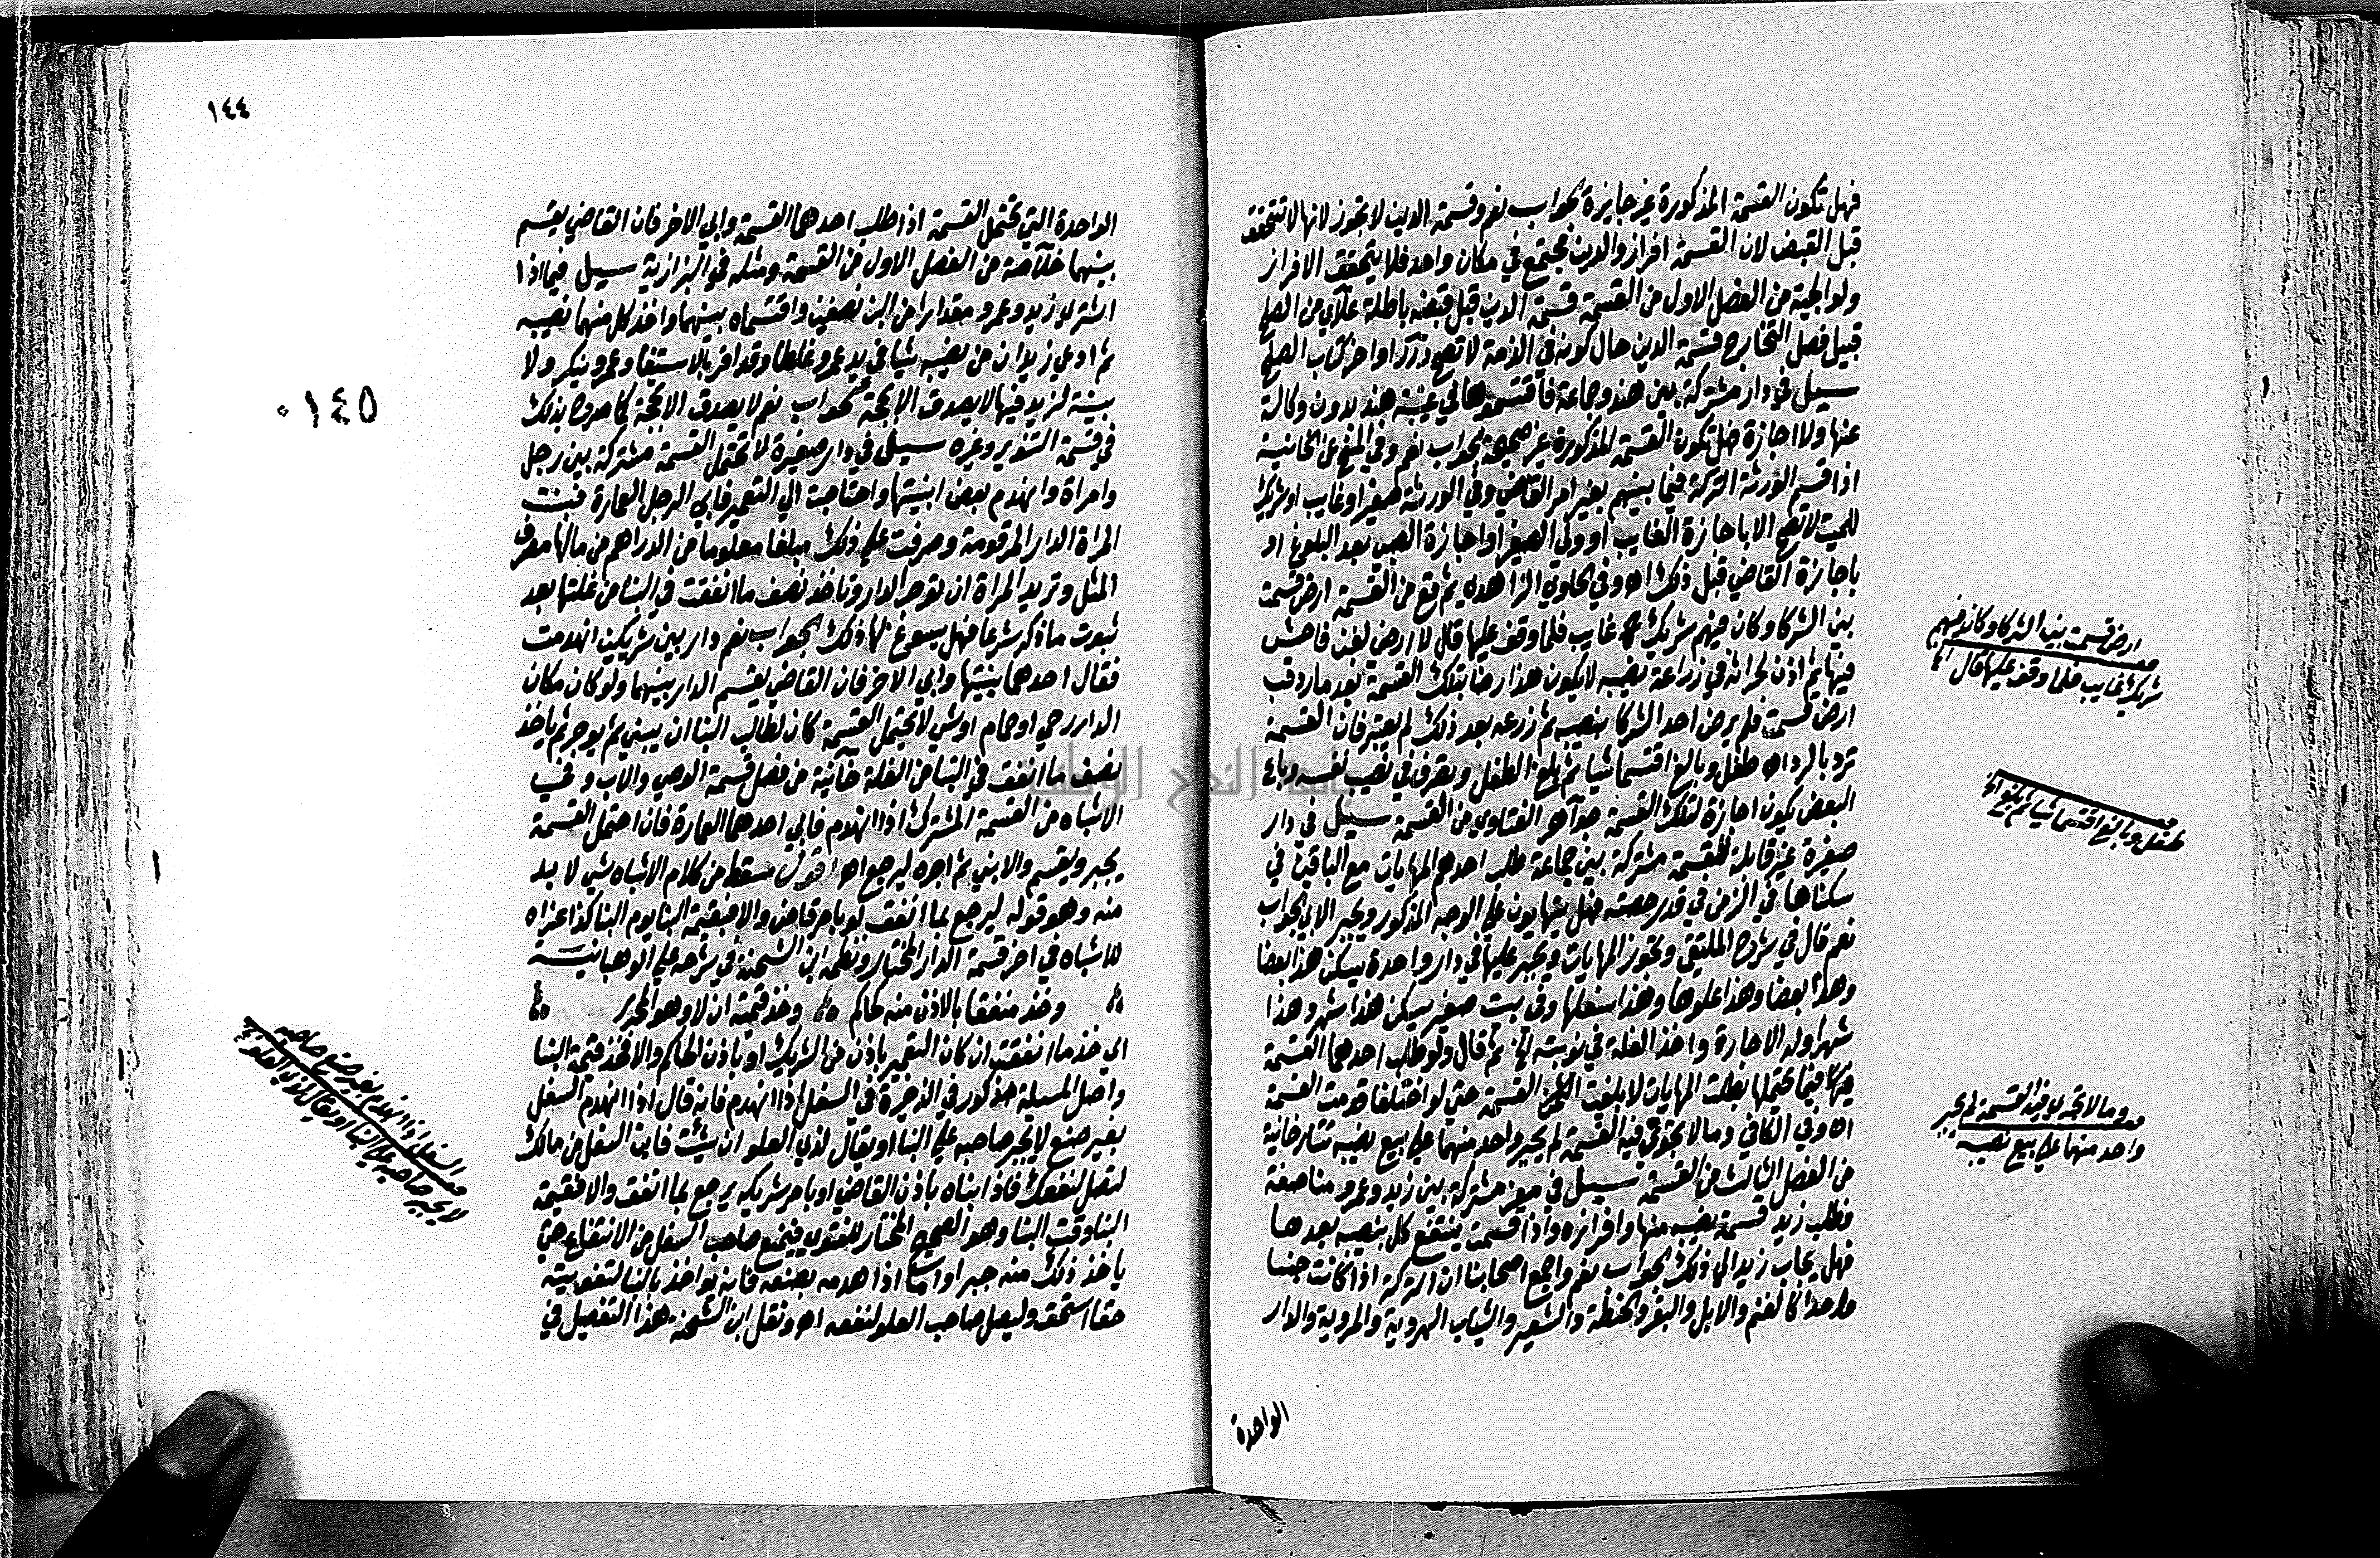 فهل تكون القسمة المذكورة غير جايزة الجواب نعم وقسمة الدين لا تجوز لانها لا تتحقق
قبل القبض لان القسمة افراز والدين مجتمع في مكان واحد فلا يتحقق الافراز
ولوالجية من الفصل الاول من القسمة قسمة الدين قبل قبضه باطلة علائي من الصلح
قبيل فصل التخارج قسمة الدين حال كونه في الذمة لا تصح درر اواخر كتاب الصلح
سيل في دار مشتركة بين هند وجماعة فاقتسموها في غيبة هند بدون وكالة
عنها ولا اجازة فهل تكون القسمة المذكورة غير صحيحة الجواب نعم وفي المنح عن الخانية
اذا قسم الورثة التركة فيما بينهم بغير امر القاضي وفي الورثة صغير او غايب او شريك
للميت لا تصح الا باجازة الغايب او ولي الصغير او اجازة الصبي بعد البلوغ او
باجازة القاضي قبل ذلك اه وفي الحاوي الزاهدي يم قع من القسمة ارض قسمت
بين الشركا وكان فيهم شريك غايب فلما وقف عليها قال لا ارض لغبن فاحش
فيها ثم اذن لحراثه في زراعة نصيبه لا يكون هذا رضا بتلك القسمة بعد ما رد قب
ارض قسمت فلم يرض احد الشركا بنصيبه ثم زرعه بعد ذلك لم يعتبر فان القسمة
ترد بالرد اه طفل وبالغ اقتسما شيا ثم بلغ الطفل وتصرف في نصيب نفسه وباع
البعض يكون اجازة لتلك القسمة جواهر الفتاوي من القسمة سيل في دار
صغيرة غير قابلة للقسمة مشتركة بين جماعة طلب احدهم المهايات مع الباقين في
سكناها في الزمن في قدر حصته فهل يتهايون علي الوجه المذكور ويجبر الابي الجواب
نعم قال في شرح الملتقي وتجوز المهايات ويجبر عليها في دار واحدة يسكن هذا بعضا
وهذا بعضا وهذا علوها وهذا سفلها وفي بيت صغير يسكن هذا شهر وهذا
شهر وله الاجارة واخذ الغلة في نوبته الخ ثم قال ولو طلب احدهما القسمة
فيها فيما يحتملها بطلت المهايات لابلغية القسمة حتي لو اختلفا قدمت القسمة
اه وفي الكافي وما لا تجري فيه القسمة لم يجبر واحد منهما علي بيع نصيبه تتارخانية
من الفصل الثالث من القسمة سيل في معز مشتركة بين زيد وعمرو مناصفة
فطلب زيد قسمة نصيبه منها وافرازه واذا قسمت ينتفع كل بنصيبه بعدها
فهل يجاب زيد الي ذلك الجواب نعم واجمع اصحابنا ان التركة اذا كانت جنسا
واحدا كالغنم والابل والبقر والحنطة والشعير والثياب الهروية والمروية والدار
الواحدة
ارض قسمت بين الشركا وكان فيهم
شريك غايب فلما وقف عليها قال الخ
طفل وبالغ اقتسما شيا ثم بلغ الخ
وما لا تجري فيه القسمة لم يجبر
واحد منهما علي بيع نصيبه
١٤٤
١٤٥
الواحدة التي تحتمل القسمة اذا طلب احدهما القسمة وابي الاخر فان القاضي يقسم
بينهما خلاصة من الفصل الاول من القسمة ومثله في البزازية سيل فيما اذا
اشتري زيد وعمرو مقدارا من البن نصفين واقتسماه بينهما واخذ كل منهما نصيبه
ثم ادعي زيد ان من نصيبه شيا في يد عمرو غلطا وقد اقر بالاستيفا وعمرو ينكر ولا
بينة لزيد فهل لا يصدق الا بحجة الجواب نعم لا يصدق الا بحجة كما صرح بذلك
في قسمة التنوير وغيره سيل في دار صغيرة لا تحتمل القسمة مشتركة بين رجل
وامراة وانهدم بعض ابنيتها واحتاجت الي التعمير فابي الرجل العمارة فبنت
المراة الدار المرقومة وصرفت علي ذلك مبلغا معلوما من الدراهم من مالها مصرف
المثل وتريد المراة ان توجر الدار وتاخذ نصف ما انفقت في البنا من غلتها بعد
ثبوت ما ذكر شرعا فهل يسوغ لها ذلك الجواب نعم دار بين شريكين انهدمت
فقال احدهما بنيتها وابي الاخر فان القاضي يقسم الدار بينهما ولو كان مكان
الدار رحي او حمام او شي لا يحتمل القسمة كان لطالب البنا ان يبني ثم يوجر ثم ياخذ
نصف ما انفق في البنا من الغلة خانية من فصل قسمة الوصي والاب وفي
الاشباه من القسمة المشترك اذا انهدم فابي احدهما العمارة فان احتمل القسمة
يجبر ويقسم والا بني ثم اجره ليرجع اه اقول سقط من كلام الاشباه شي لا بد
منه وهو قوله ليرجع بما انفق لو بامر قاض والا فبقيمة البنا يوم البنا كذا عزاه
للاشباه في اخر قسمة الدار المختار ونظمه ابن الشحنة في شرحه علي الوهبانية
وخذ منفقا بالاذن منه حاكم وخذ قيمة ان لا وهو المحرر
اي خذ ما انفقت ان كان التعمير باذن من الشريك او باذن الحاكم والا فخذ قيمة البنا
واصل المسيلة مذكور في الذخيرة في السفل اذا انهدم فانه قال اذا انهدم السفل
بغير صنع لا يجبر صاحبه علي البنا او يقال لذي العلو ان شيت فابن السفل من مالك
لتصل لنفعك فاذا بناه باذن القاضي او بامر شريكه يرجع بما انفق والا فقيمة
البنا وقت البنا وهو الصحيح المختار للفتوي فيمنع صاحب السفل من الانتفاع حتي
ياخذ ذلك منه جبرا واما اذا هدمه بصنعه فانه يواخذ بالبنا لتفويته
حقا استحق وليصل صاحب العلو لنفعه اه ونقل ابن الشحنة هذا التفصيل في
السفل اذا انهدم بغير صنع صاحبه
لا يجبر صاحبه علي البنا او يقال لذي العلو الخ